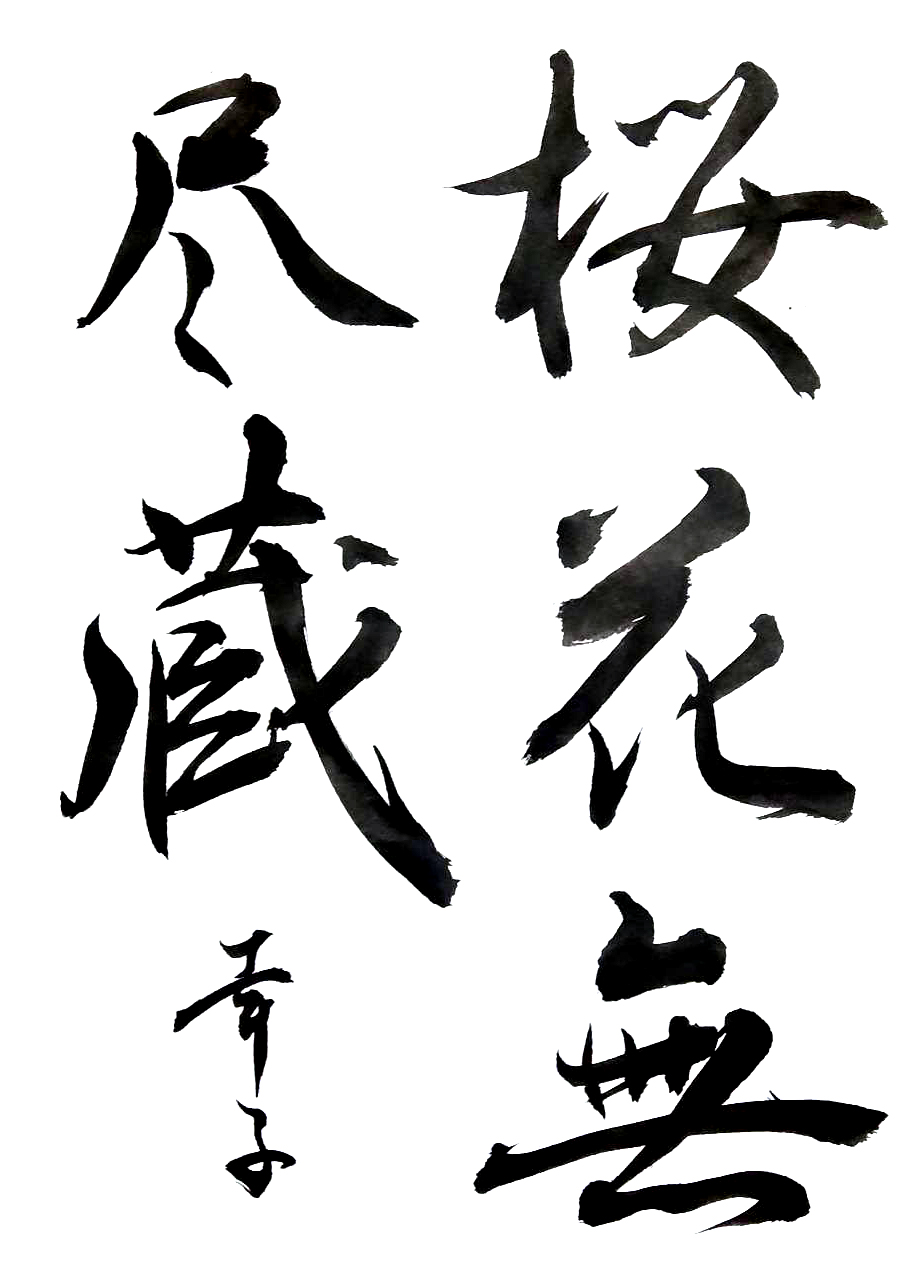 桜花無
尽蔵
幸子